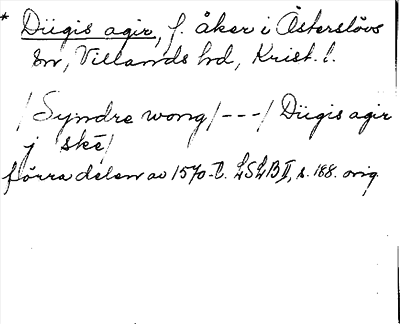 * Dügis agir, f. åker i Österslövs
sn, Villands hd, Krist. l.
/Syndre wong/---/Dügis agir
j skē/
förra delen av 1570-t. LSLB II, s. 188. orig.